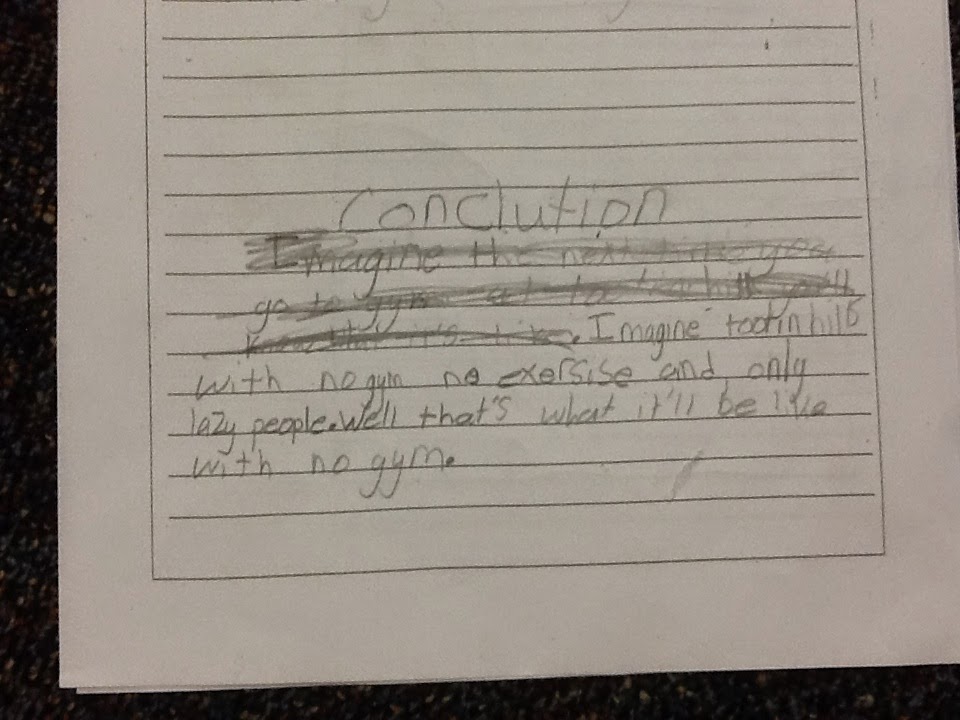 Conclution
Imagine the next time you
go to gym at tootin hills you'll
know that it's like. Imagine tootin hills
with no gym no exersise and only
lazy people. Well that's what it'll be like
with no gym.